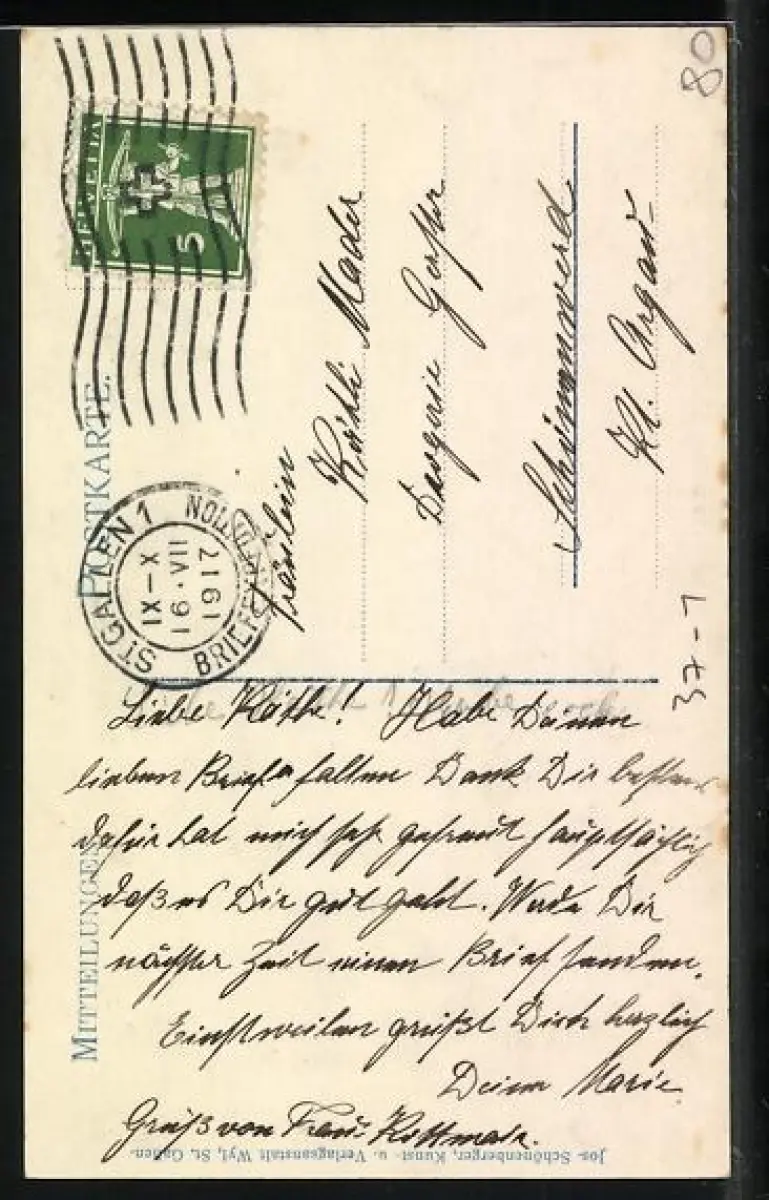 80
HELVETIA
5
POSTKARTE.
ST. GALLEN 1
IX–X
16.VII
1917
BRIEFEXPEDITION
Fräulein
Käthi Mader
Schönenwerd
Kt. Argau
37-1
MITTEILUNGEN
Liebe Käthe! Habe Deinen
lieben Brief erhalten Dank Dir bestens
dafür hat mich sehr gefreut hauptsächlich
daß es Dir gut geht. Werde Dir
nächster Zeit einen Brief senden.
Einstweilen grüßt Dich herzlich
Deine Marie
Gruß von Frau
Jos. Schönenberger, Kunst- u. Verlagsanstalt Wyl, St. Gallen.